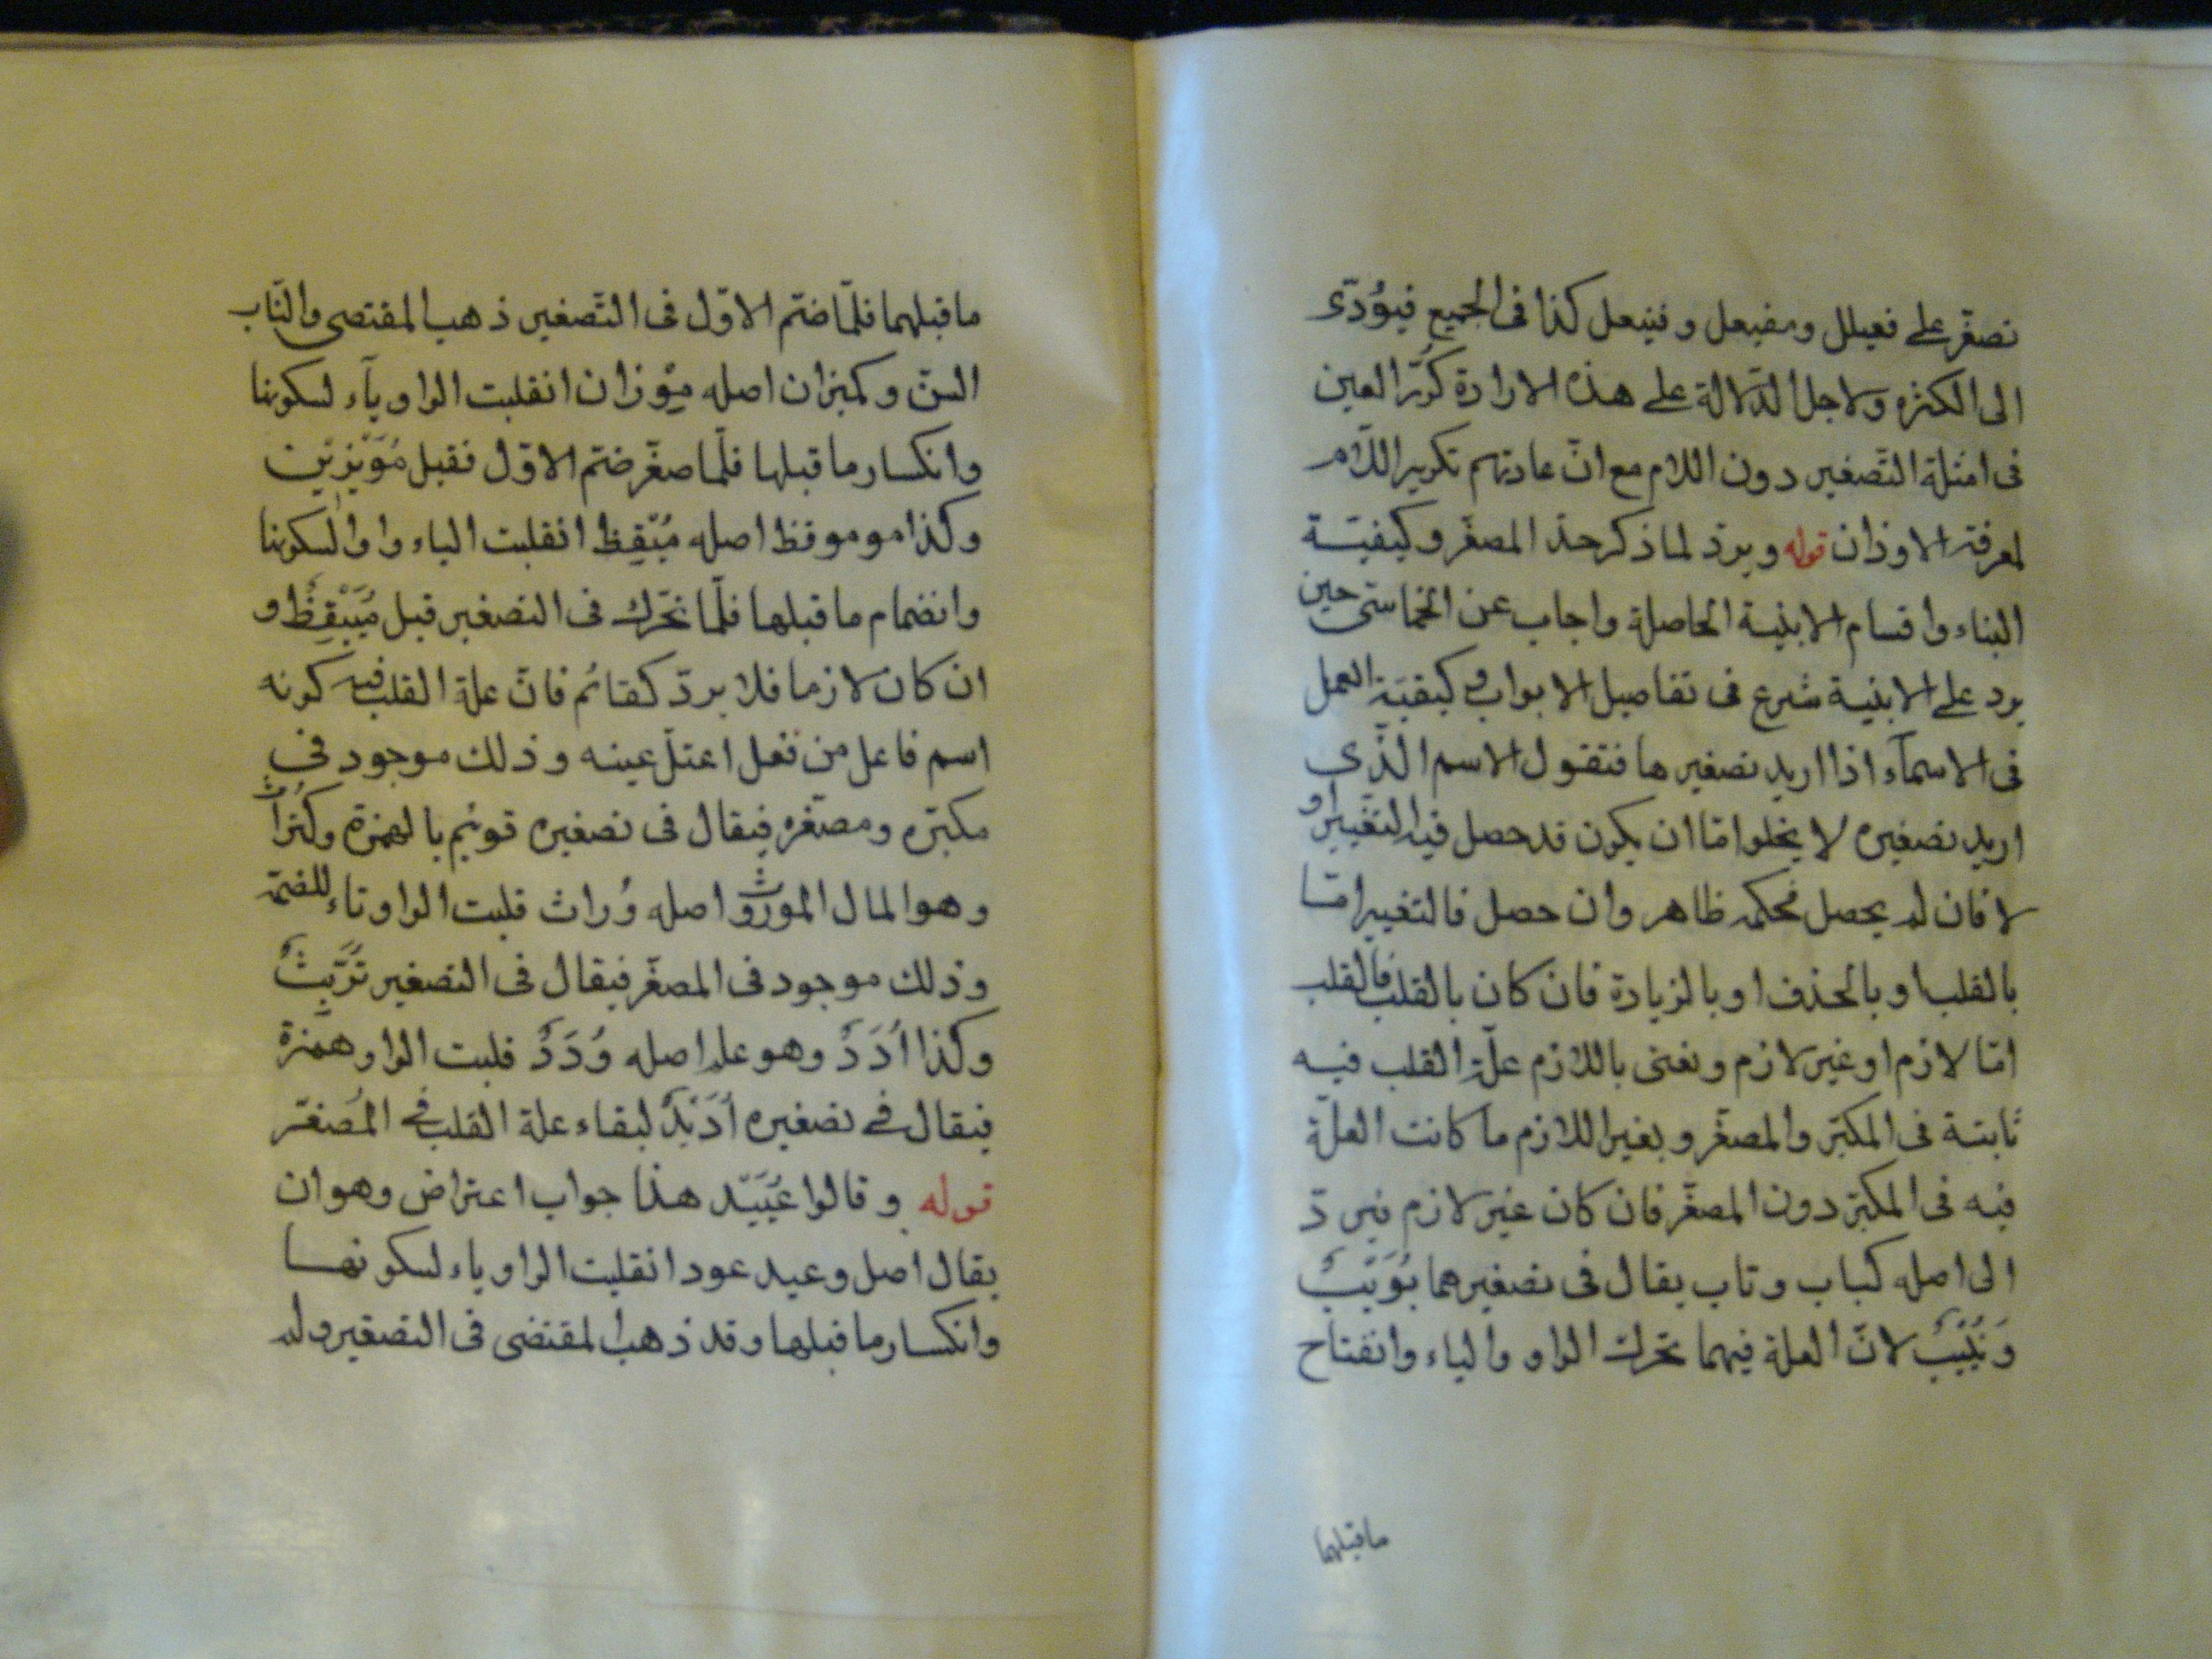 نصغّر على فعيلل ومفيعل وفنيعل كذا فى الجميع فيؤدّى
الى الكثره ولاجل الدّلالة على هذه الارادة كُرّر العين
فى امثلة التّصغير دون اللام مع انّ عادتهم تكرير اللّام
لمعرفة الاوزان قوله ويردّ لما ذكر حدّ المصغّر وكيفيّة
البناء واقسام الابنية الحاصلة واجاب عن الخماسىّ حين
يرد على الابنية شرع فى تفاصيل الابواب وكيفيّة العمل
فى الاسمآء اذا اريد تصغيرها فنقول الاسم الّذى
اريد تصغيره لا يخلوا امّا ان يكون قد حصل فيه التغيير او
لا فان لم يحصل فحكمه ظاهر وان حصل فالتغيير امّا
بالقلب او بالحذف او بالزيادة فان كان بالقلب فالقلب
امّا لازم او غير لازم ونعنى باللازم علّة القلب فيه
ثابتة فى المكبّر والمصغّر وبغير اللازم ما كانت العلّة
فيه فى المكبّر دون المصغّر فان كان غير لازم فيردّ
الى اصله كباب وناب يقال فى تصغيرهما بُوَيْبٌ
وَنُيَيْبٌ لانّ العلة فيهما تحرك الواو والياء وانفتاح
ما قبلهما
ما قبلهما فلمّا ضمّ الاوّل فى التّصغير ذهب المقتضى والنّاب
السنّ وكميزان اصله مِوْزان انقلبت الواو يآء لسكونها
وانكسار ما قبلها فلمّا صغّر ضمّ الاوّل فقيل مُوَيْزِيْن
وكذا موموقظ اصله مُيْقِظ انقلبت الياء واوا لسكونها
وانضمام ما قبلها فلمّا تحّرك فى التصغير قيل مُيَيْقِظٌ و
ان كان لازما فلا يردّ كقائم فانّ علة القلب فيه كونه
اسم فاعل من فعل اعتلّ عينه وذلك موجود فى
مكبّره ومصغّره فيقال فى تصغيره قوئيم بالهمزة وكتُراث
وهو المال الموروث اصله وُراث قلبت الواو تاء للضمّة
وذلك موجود فى المصغّر فيقال فى التصغير تُرَيّثٌ
وكذا اُدَدٌ وهو علم اصله وُدَدٌ قلبت الواو همزة
فيقال فى تصغيره اُدَيْدٌ لبقاء علة القلب فى المُصغّر
قوله وقالوا عُيَيْد هذا جواب اعتراض وهو ان
يقال اصل وعيد عود انقلبت الواو ياء لسكونها
وانكسار ما قبلها وقد ذهب المقتضى فى التصغير ولم